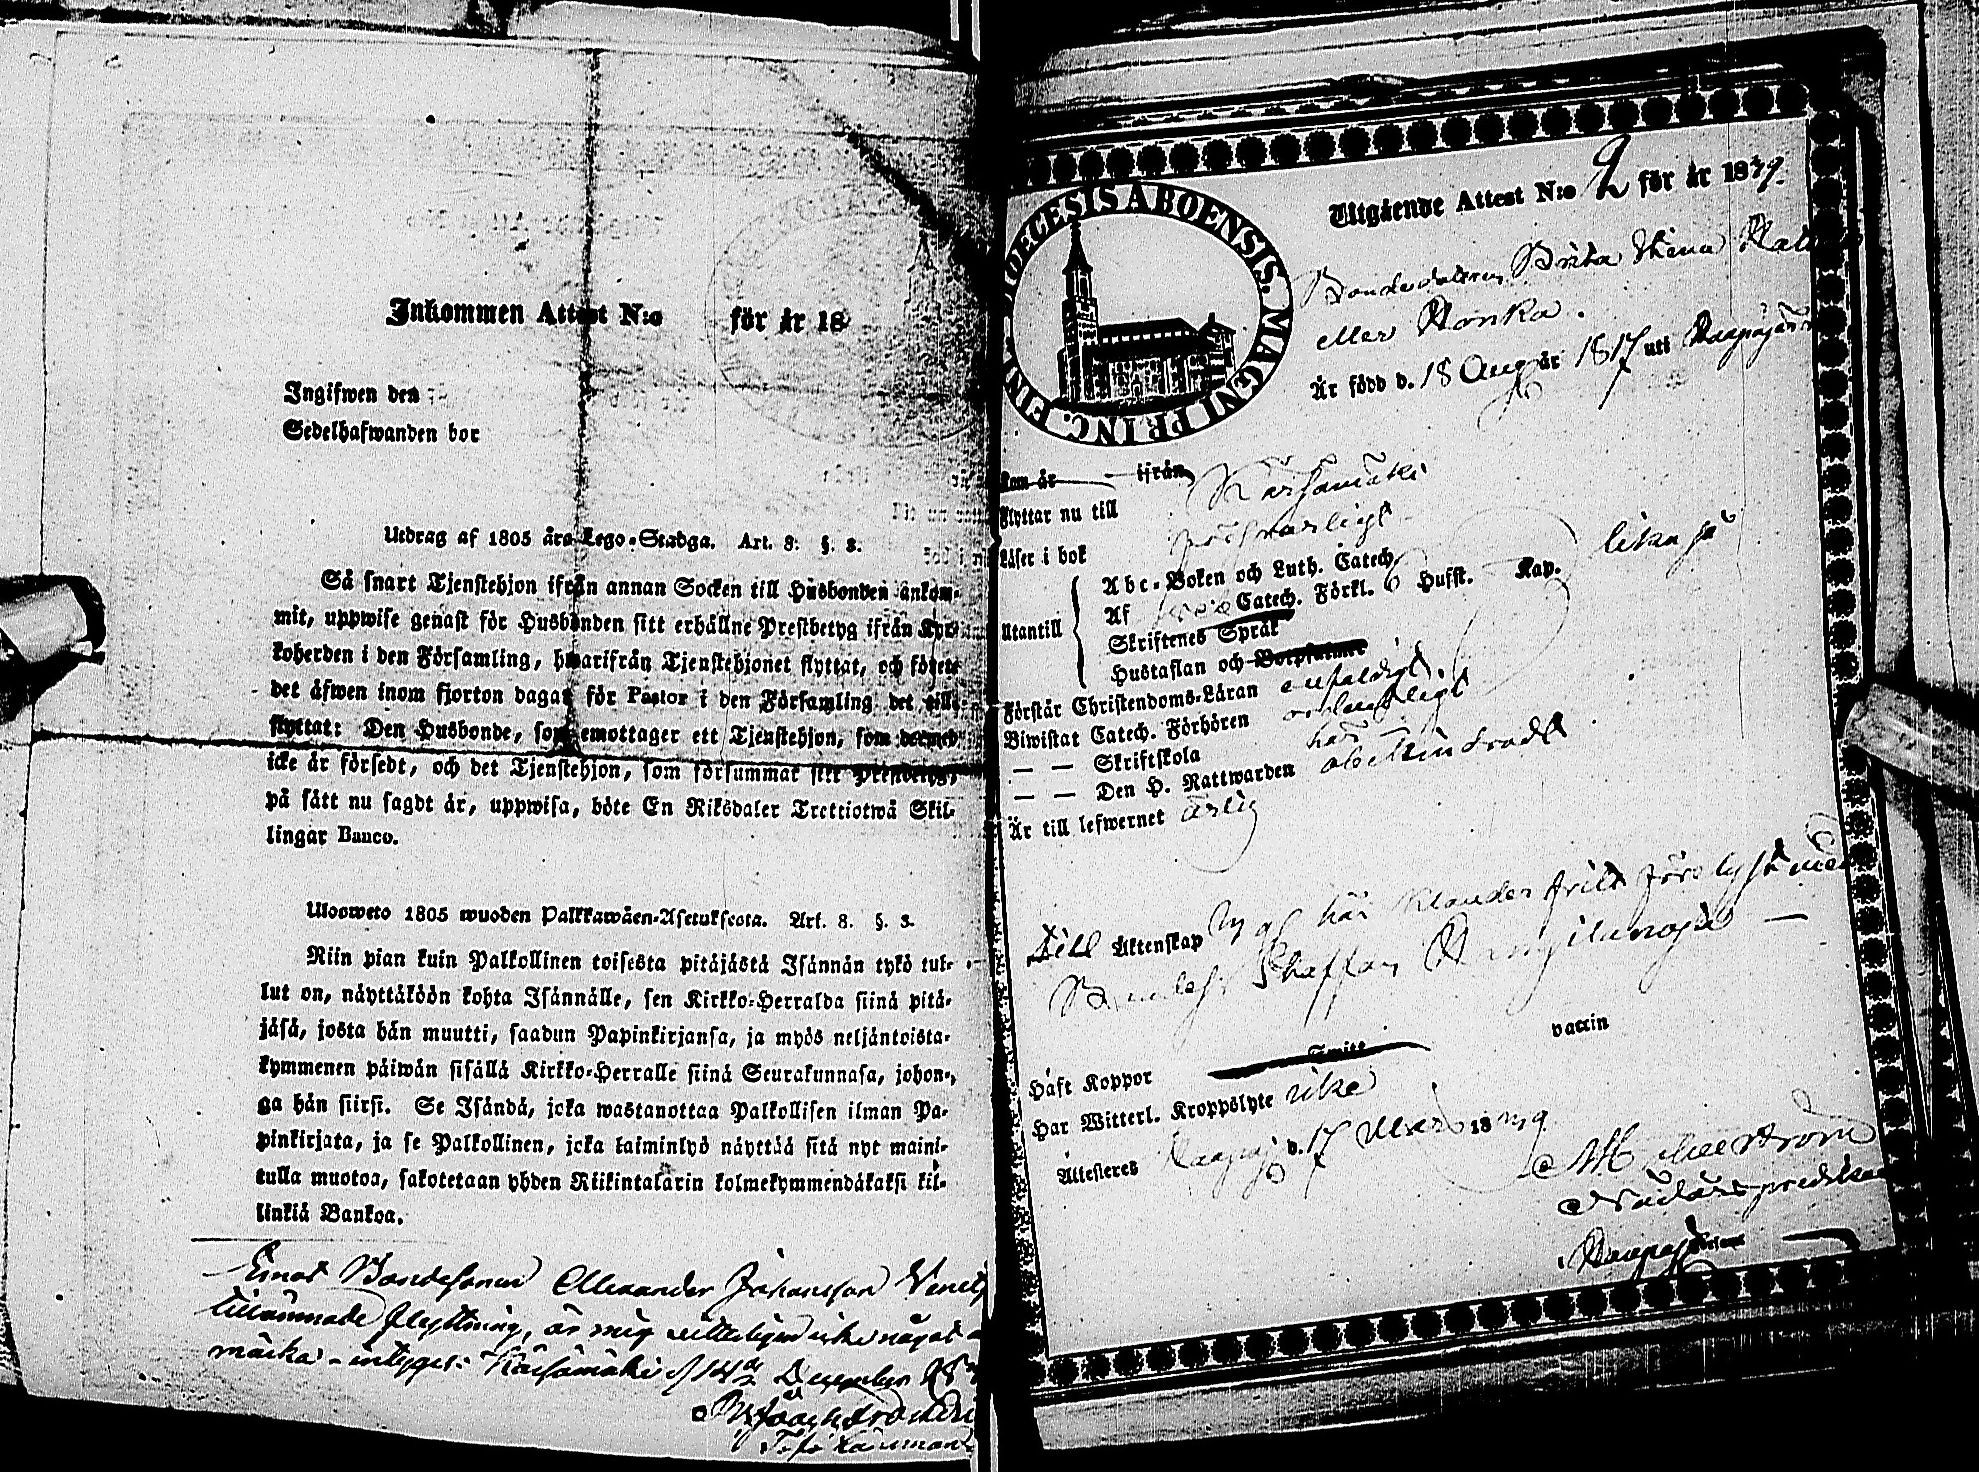 Inkommen Attest N:o för år 18
Ingifwen den
Sedelhafwanden bor
Utdrag af 1805 års Lego-Stadga. Art. 8. §. 3.
Så snart Tjenstehjon ifrån annan Socken till Husbonden ankom-
mit, uppwise genast för Husbonden sitt erhållne Prestbetyg ifrån Kyr-
koherden i den Församling, hwarifrån Tjenstehjonet flyttat, och förete
det äfwen inom fjorton dagar för Pastor i den Församling det till-
flyttat: Den Husbonde, som emottager ett Tjenstehjon, som dermed
icke är försedt, och det Tjenstehjon, som försummar sitt Prestbetyg,
på sätt nu sagdt är, uppwisa, böte En Riksdaler Trettiotwå Skil-
lingar Banco.
Ulosweto 1805 wuoden Palkkawäen-Asetuksesta. Art. 8. §. 3.
Niin pian kuin Palkollinen toisesta pitäjästä Isännän tykö tul-
lut on, näyttäköön kohta Isännälle, sen Kirkko-Herralda siinä pitä-
jäsä, josta hän muutti, saadun Papinkirjansa, ja myös neljäntoista-
kymmenen päiwän sisällä Kirkko-Herralle siinä Seurakunnasa, johon-
ga hän siirsi. Se Isändä, joka wastanottaa Palkollisen ilman Pa-
pinkirjata, ja se Palkollinen, joka laiminlyö näyttää sitä nyt maini-
tulla muotoa, sakotetaan yhden Riikintalarin kolmekymmendäkaksi kil-
linkiä Bankoa.
Emot Bondesonen Alexander Johansson
tillämnade flyttning, är mig icke något
märka. intygar. Kärsämäki d 14 December 18
DIOECESIS ABOENSIS. MAGNI PRINC. FINL.
Utgående Attest N:o 2 för år 1839.
Bondedottren Brita Stina
eller Honka.
Är född d. 18 Aug år 1817 uti Haapajärvi
kom år ifrån
flyttar nu till Kärsämäki
Läser i bok försvarligt
Utantill
Abc-Boken och Luth. Catech.
Af Catech. Förkl. 6 Hufst. Kap. lika så
Skriftenes Språk
Hustaflan och Botpsalmer
Förstår Christendoms-Läran enfaldigt
Biwistat Catech. Förhören ordentligt
— — Skriftskola här
— — Den H. Nattwarden oklandradt
Är till lefwernet ärlig
Till Äktenskap här klander fritt förelyst med
Staffan
Häft Koppor Smitt vaccin
Har Witterl. Kroppslyte icke
Attesteres Haapaj d. 17 Mars 1839
Haapaj